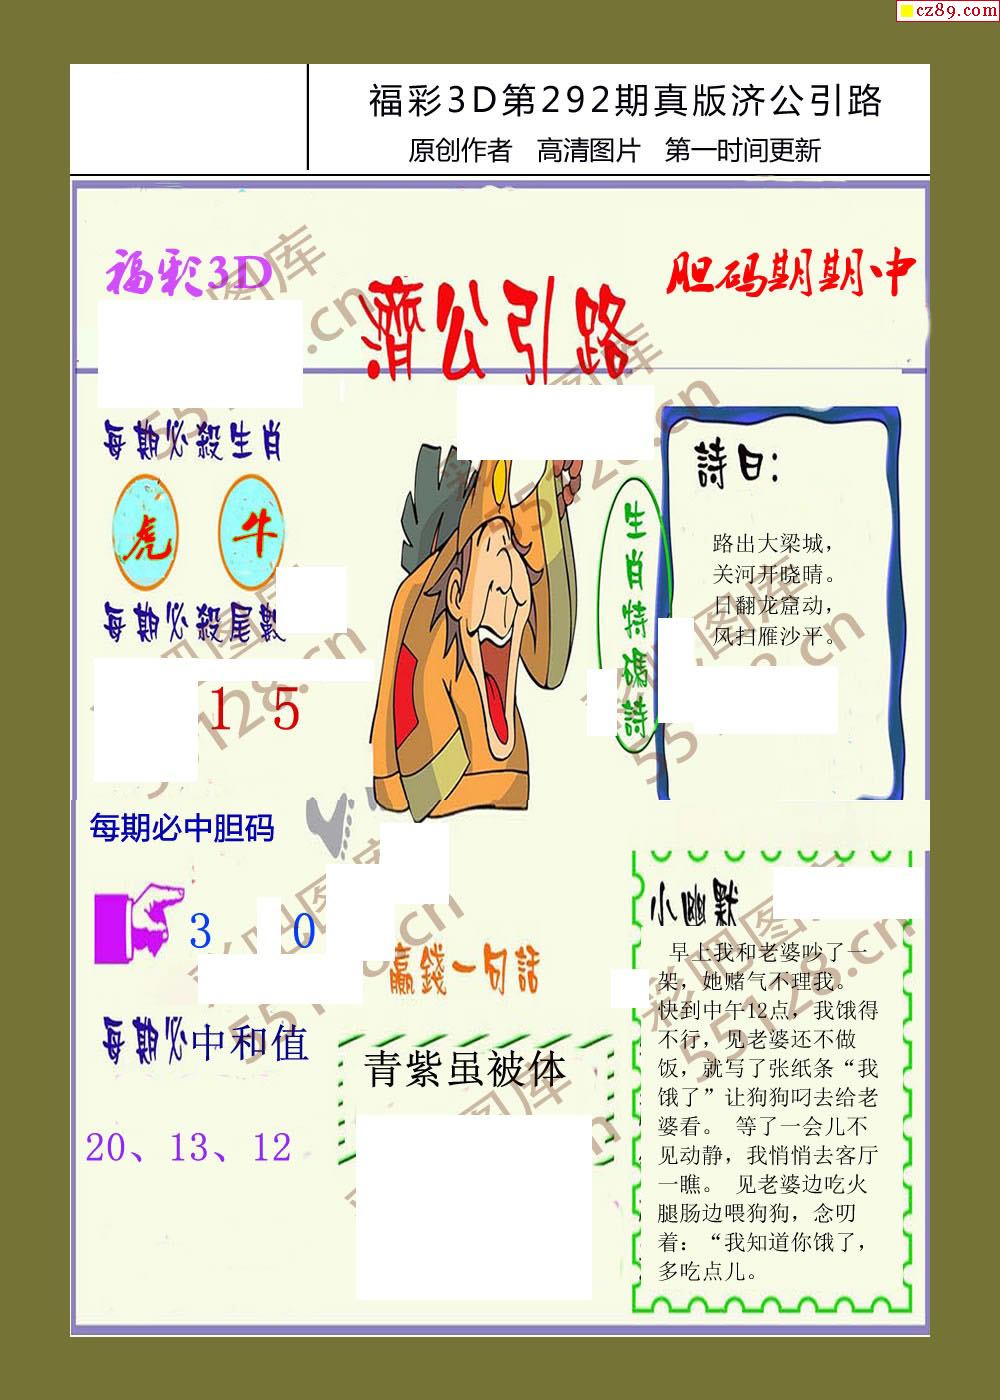 cz89.com
福彩3D第292期真版济公引路
原创作者 高清图片 第一时间更新
福彩3D
濟公引路
胆码期期中
每期必殺生肖
虎 牛
每期必殺尾數
1 5
生肖特碼詩
詩曰：
路出大梁城，
关河开晓晴。
日翻龙窟动，
风扫雁沙平。
每期必中胆码
3 0
每期必中和值
20、13、12
赢錢一句話
青紫虽被体
小幽默
早上我和老婆吵了一
架，她赌气不理我。
快到中午12点，我饿得
不行，见老婆还不做
饭，就写了张纸条“我
饿了”让狗狗叼去给老
婆看。 等了一会儿不
见动静，我悄悄去客厅
一瞧。 见老婆边吃火
腿肠边喂狗狗，念叨
着：“我知道你饿了，
多吃点儿。
彩吧图库
55128.cn